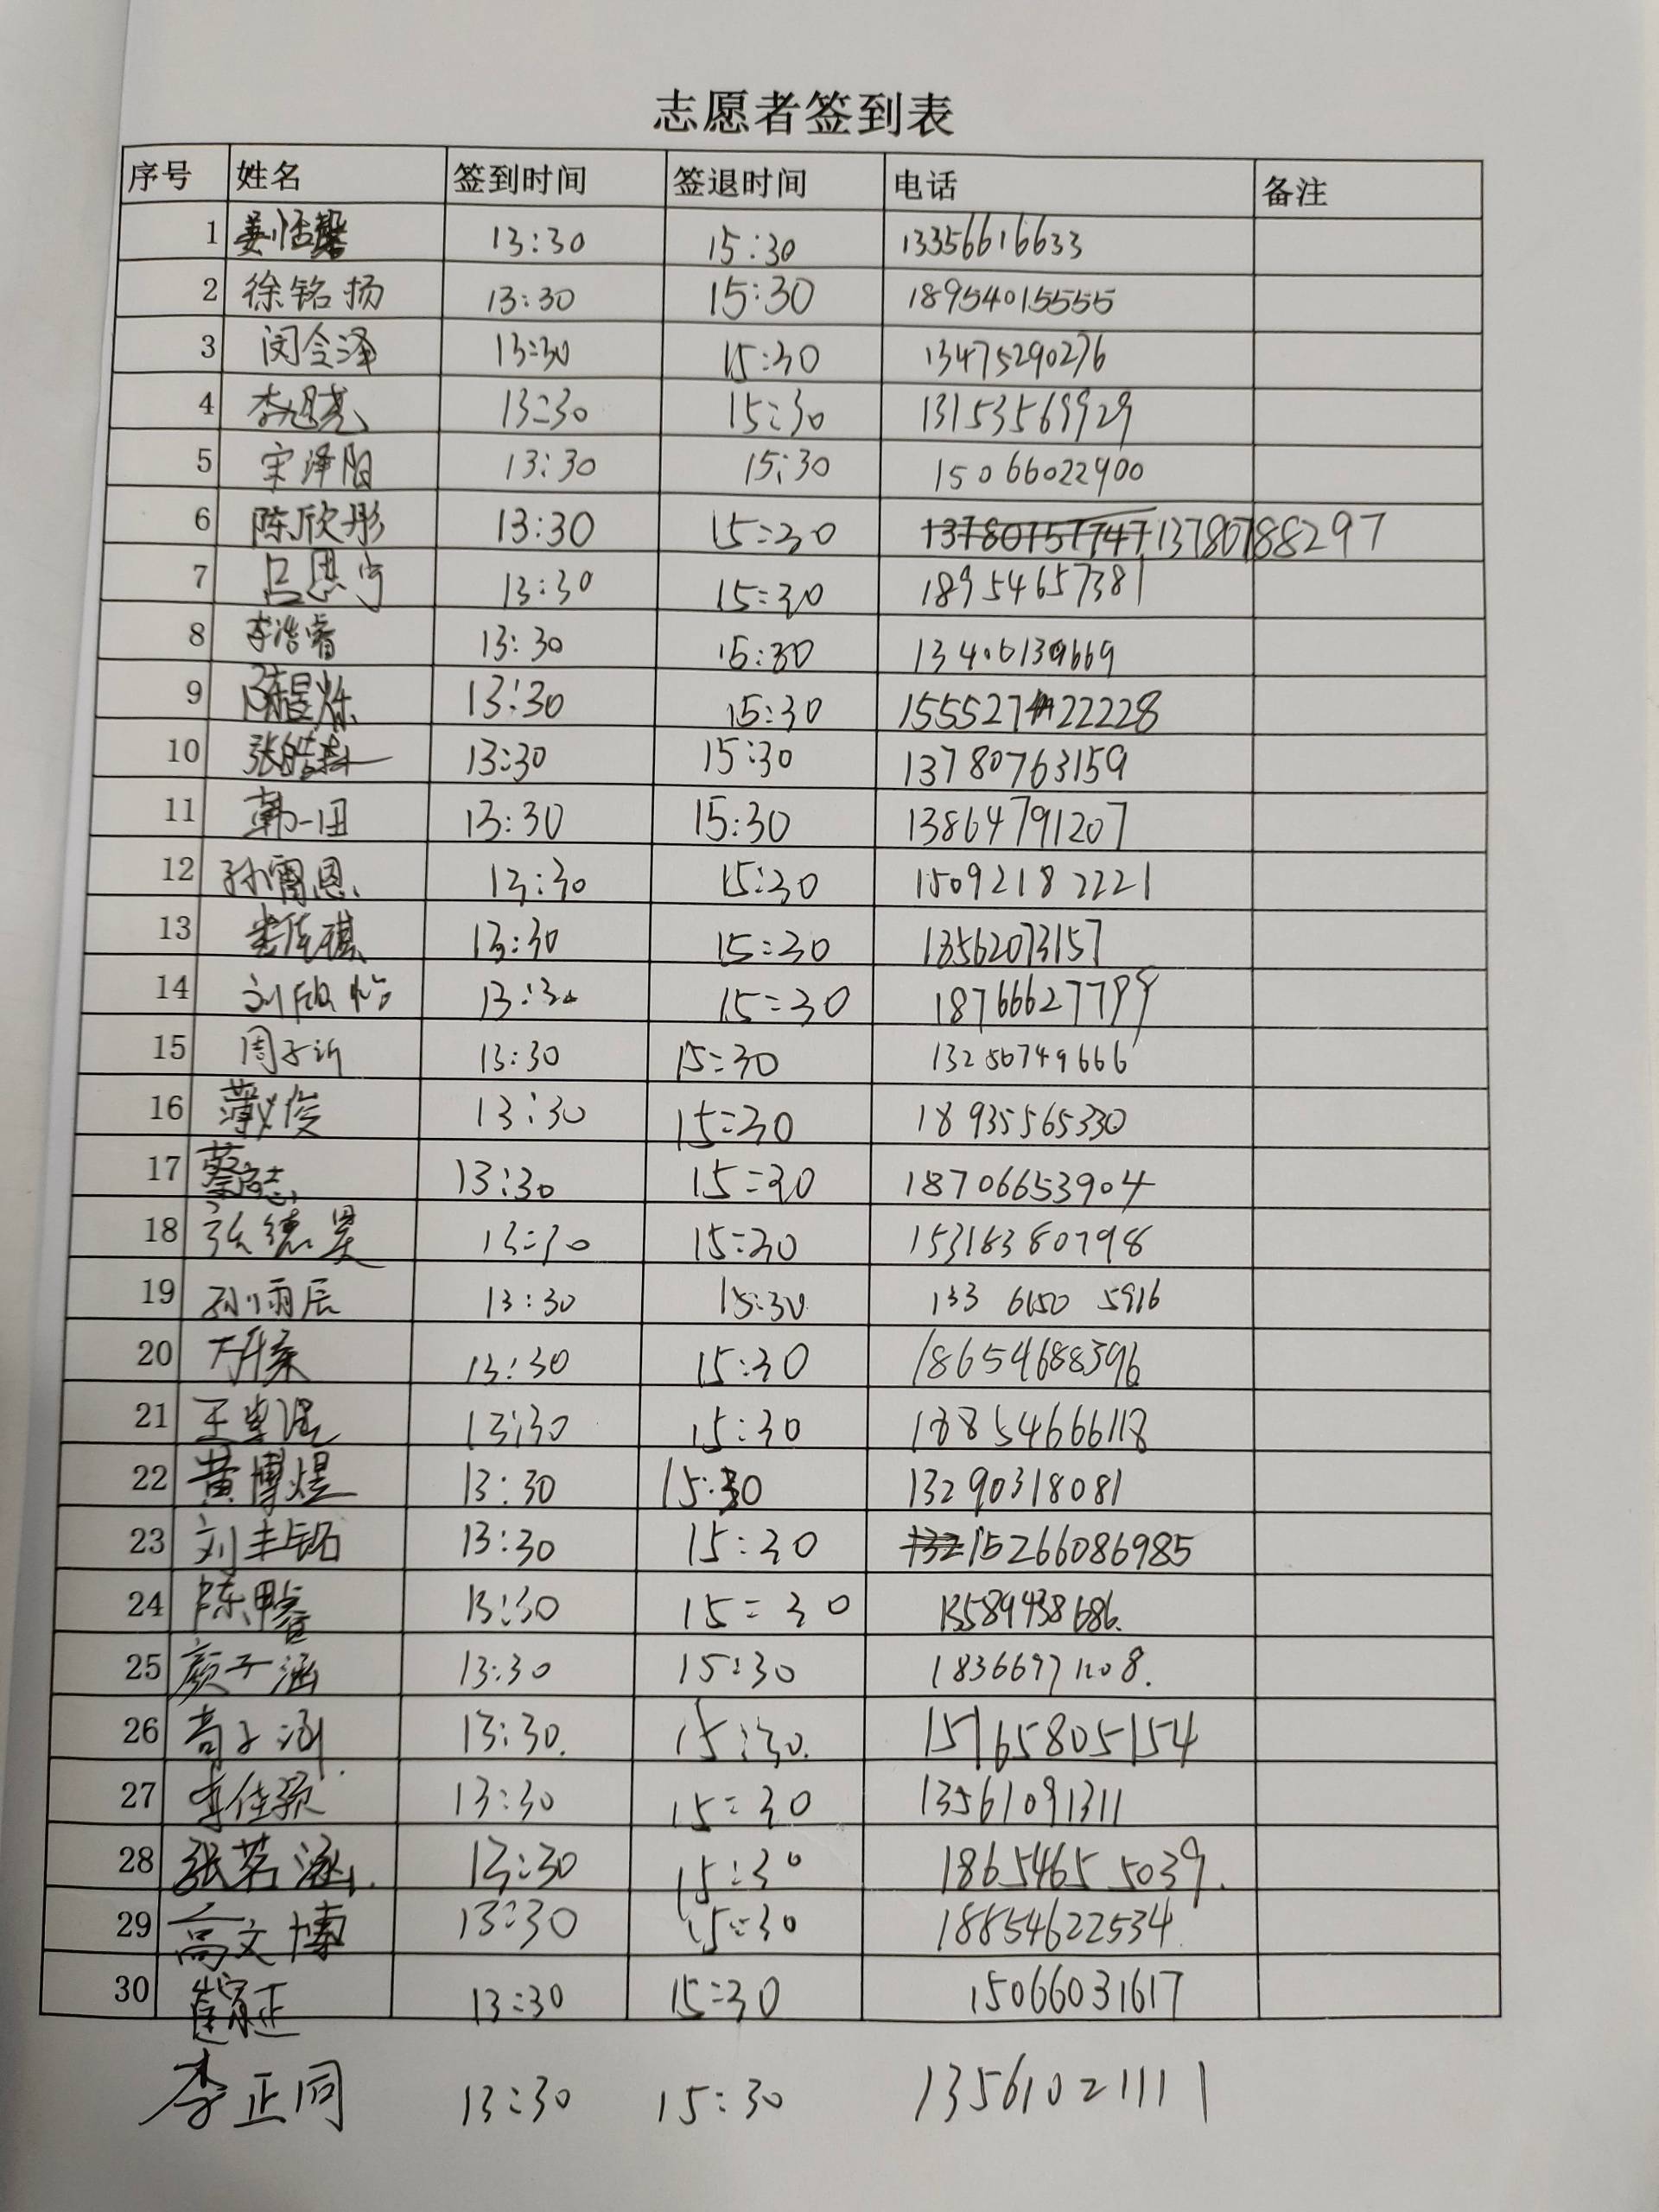 志愿者签到表
序号 姓名 签到时间 签退时间 电话 备注
1 姜恬馨 13:30 15:30 13356616633
2 徐铭扬 13:30 15:30 18954015555
3 闵令泽 13:30 15:30 13475290276
4 李旭亮 13:30 15:30 13153569929
5 宋泽阳 13:30 15:30 15066022900
6 陈欣彤 13:30 15:30 13780757747 13780788297
7 吕思宁 13:30 15:30 18954657381
8 李浩睿 13:30 15:30 13406139669
9 陈昱烁 13:30 15:30
10 13:30 15:30 13780763159
11 韩一田 13:30 15:30 13864791207
12 孙雷恩 13:30 15:30 15092182221
13 13:30 15:30 13562073157
14 刘欣怡 13:30 15:30 18766627799
15 周子沂 13:30 15:30
16 薄义俊 13:30 15:30 18935565330
17 13:30 15:30 18706653904
18 张德昊 13:30 15:30 15318380798
19 孙雨辰 13:30 15:30 133 6150 5916
20 13:30 15:30 18654688396
21 13:30 15:30 18854666118
22 黄博煜 13:30 15:30 13290318081
23 刘丰铭 13:30 15:30 132 15266086985
24 13:30 15:30 13589438686.
25 颜子涵 13:30 15:30 18366971208.
26 苟子涵. 13:30. 15:30. 15165805154
27 李佳颖 13:30 15:30 13561091311
28 张茗涵. 13:30 15:30 18654655039.
29 高文博 13:30 15:30 18854622534.
30 崔家正 13:30 15:30 15066031617
李正同 13:30 15:30 13561021111